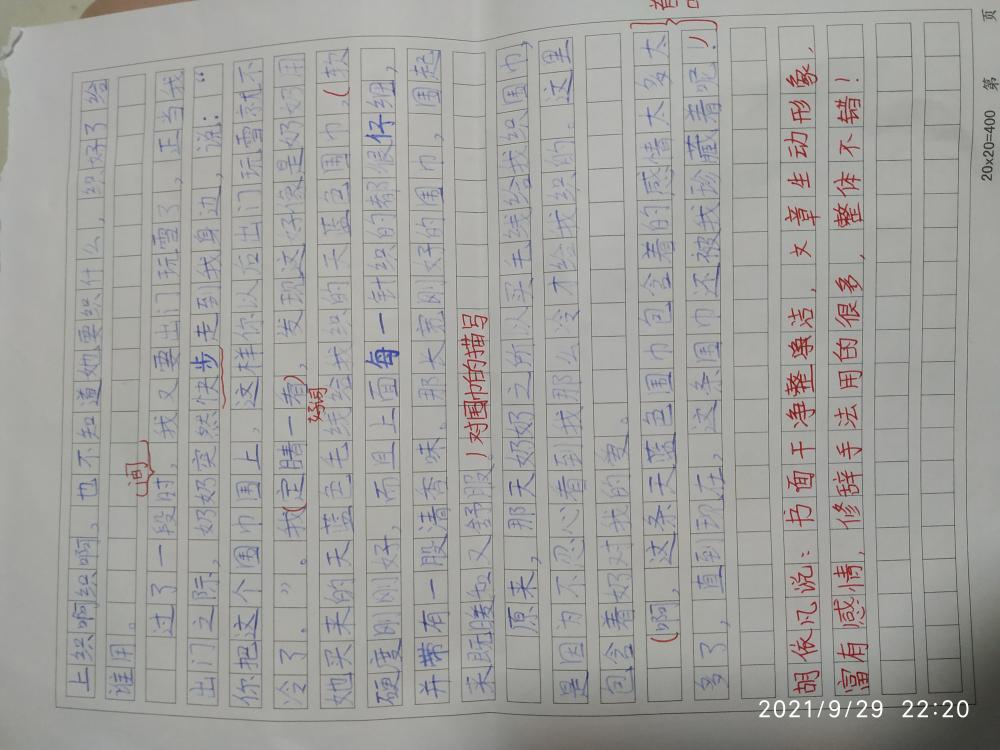 上织啊织啊,也不知道她要织什么,织好了给
谁用。
间
过了一段时,我又要出门玩雪了,正当我
出门之际,奶奶突然快步走到我身边,说:“
你把这个围巾围上,这样你以后出门玩雪就不
冷了。”。我(定睛一看),发现这好像是奶奶用
好词
她买来的天蓝色毛线给我织的天蓝色围巾。(软
硬度刚刚好,而且上面每一针织的都很仔细,
并带有一股清香味。那大宽刚好的围巾,围起
来既暖和又舒服)对围巾的描写
原来,那天奶奶之所以买毛线给我织围巾,
是因为不忍心看到我那么冷才给我织的。这里
包含着奶奶对我的爱。
(啊,这条天蓝色围巾包含着的感情太多太
多了,直到现在,这条围巾还被我珍藏着呢!)
胡依凡说:书面干净整洁,文章生动形象,
富有感情,修辞手法用的很多,整体不错!
20x20=400 第 页
2021/9/29 22:20